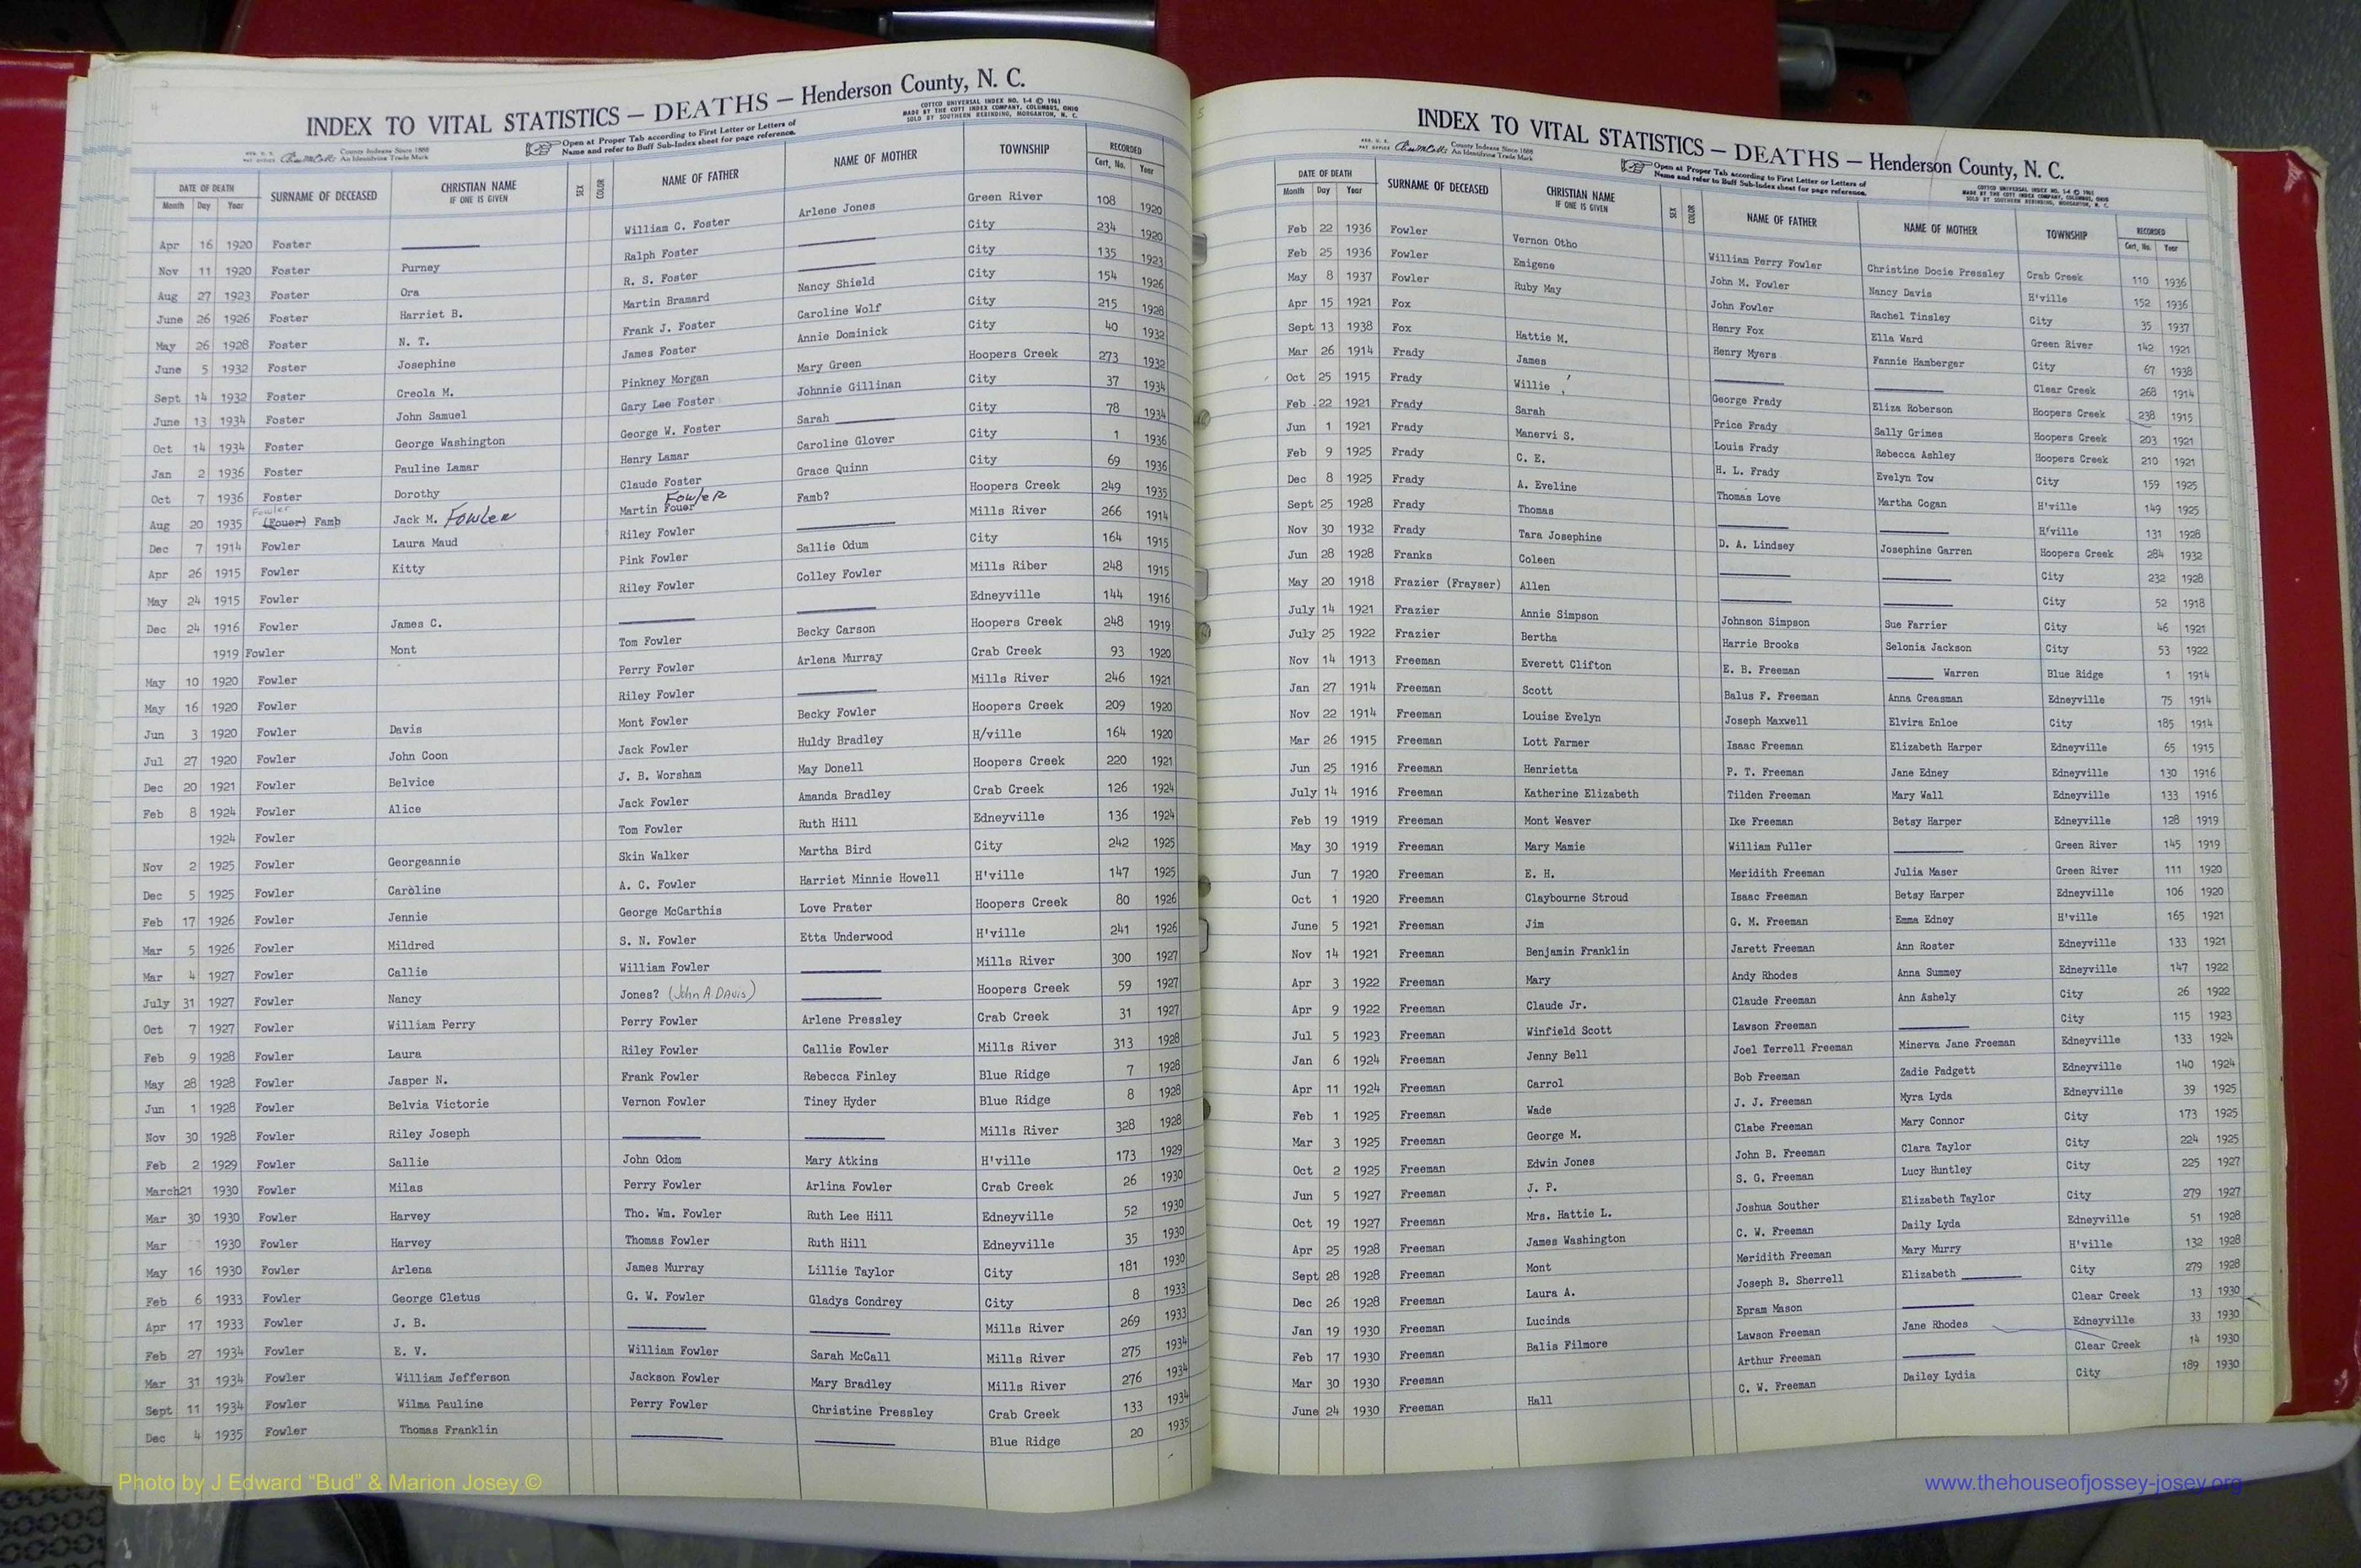 INDEX TO VITAL STATISTICS — DEATHS — Henderson County, N. C.
COTTCO UNIVERSAL INDEX NO. 1-4 © 1961
MADE BY THE COTT INDEX COMPANY, COLUMBUS, OHIO
SOLD BY SOUTHERN REBINDING, MORGANTON, N. C.
County Indexes Since 1888
An Identifying Trade Mark
Open at Proper Tab according to First Letter or Letters of
Name and refer to Buff Sub-Index sheet for page reference.
DATE OF DEATH SURNAME OF DECEASED CHRISTIAN NAME IF ONE IS GIVEN SEX COLOR NAME OF FATHER NAME OF MOTHER TOWNSHIP RECORDED
Month Day Year Cert. No. Year
Apr 16 1920 Foster William C. Foster Arlene Jones Green River 108 1920
Nov 11 1920 Foster Purney Ralph Foster City 234 1920
Aug 27 1923 Foster Ora R. S. Foster City 135 1923
June 26 1926 Foster Harriet B. Martin Bramard Nancy Shield City 154 1926
May 26 1928 Foster N. T. Frank J. Foster Caroline Wolf City 215 1928
June 5 1932 Foster Josephine James Foster Annie Dominick City 40 1932
Sept 14 1932 Foster Creola M. Pinkney Morgan Mary Green Hoopers Creek 273 1932
June 13 1934 Foster John Samuel Gary Lee Foster Johnnie Gillinan City 37 1934
Oct 14 1934 Foster George Washington George W. Foster Sarah City 78 1934
Jan 2 1936 Foster Pauline Lamar Henry Lamar Caroline Glover City 1 1936
Oct 7 1936 Foster Dorothy Claude Foster Grace Quinn City 69 1936
Fowler Fowler
Aug 20 1935 (Fouer) Famb Jack M. Fowler Martin Fouer Famb? Hoopers Creek 249 1935
Dec 7 1914 Fowler Laura Maud Riley Fowler Mills River 266 1914
Apr 26 1915 Fowler Kitty Pink Fowler Sallie Odum City 164 1915
May 24 1915 Fowler Riley Fowler Colley Fowler Mills Riber 248 1915
Dec 24 1916 Fowler James C. Edneyville 144 1916
1919 Fowler Mont Tom Fowler Becky Carson Hoopers Creek 248 1919
May 10 1920 Fowler Perry Fowler Arlena Murray Crab Creek 93 1920
May 16 1920 Fowler Riley Fowler Mills River 246 1921
Jun 3 1920 Fowler Davis Mont Fowler Becky Fowler Hoopers Creek 209 1920
Jul 27 1920 Fowler John Coon Jack Fowler Huldy Bradley H/ville 164 1920
Dec 20 1921 Fowler Belvice J. B. Worsham May Donell Hoopers Creek 220 1921
Feb 8 1924 Fowler Alice Jack Fowler Amanda Bradley Crab Creek 126 1924
1924 Fowler Tom Fowler Ruth Hill Edneyville 136 1924
Nov 2 1925 Fowler Georgeannie Skin Walker Martha Bird City 242 1925
Dec 5 1925 Fowler Caroline A. C. Fowler Harriet Minnie Howell H'ville 147 1925
Feb 17 1926 Fowler Jennie George McCarthis Love Prater Hoopers Creek 80 1926
Mar 5 1926 Fowler Mildred S. N. Fowler Etta Underwood H'ville 241 1926
Mar 4 1927 Fowler Callie William Fowler Mills River 300 1927
July 31 1927 Fowler Nancy Jones? (John A. Davis) Hoopers Creek 59 1927
Oct 7 1927 Fowler William Perry Perry Fowler Arlene Pressley Crab Creek 31 1927
Feb 9 1928 Fowler Laura Riley Fowler Callie Fowler Mills River 313 1928
May 28 1928 Fowler Jasper N. Frank Fowler Rebecca Finley Blue Ridge 7 1928
Jun 1 1928 Fowler Belvia Victorie Vernon Fowler Tiney Hyder Blue Ridge 8 1928
Nov 30 1928 Fowler Riley Joseph Mills River 328 1928
Feb 2 1929 Fowler Sallie John Odom Mary Atkins H'ville 173 1929
March 21 1930 Fowler Milas Perry Fowler Arlina Fowler Crab Creek 26 1930
Mar 30 1930 Fowler Harvey Tho. Wm. Fowler Ruth Lee Hill Edneyville 52 1930
Mar 1930 Fowler Harvey Thomas Fowler Ruth Hill Edneyville 35 1930
May 16 1930 Fowler Arlena James Murray Lillie Taylor City 181 1930
Feb 6 1933 Fowler George Cletus G. W. Fowler Gladys Condrey City 8 1933
Apr 17 1933 Fowler J. B. Mills River 269 1933
Feb 27 1934 Fowler E. V. William Fowler Sarah McCall Mills River 275 1934
Mar 31 1934 Fowler William Jefferson Jackson Fowler Mary Bradley Mills River 276 1934
Sept 11 1934 Fowler Wilma Pauline Perry Fowler Christine Pressley Crab Creek 133 1934
Dec 4 1935 Fowler Thomas Franklin Blue Ridge 20 1935
INDEX TO VITAL STATISTICS — DEATHS — Henderson County, N. C.
County Indexes Since 1888
An Identifying Trade Mark
Open at Proper Tab according to First Letter or Letters of
Name and refer to Buff Sub-Index sheet for page reference.
COTTCO UNIVERSAL INDEX NO. 1-4 © 1961
MADE BY THE COTT INDEX COMPANY, COLUMBUS, OHIO
SOLD BY SOUTHERN REBINDING, MORGANTON, N. C.
DATE OF DEATH SURNAME OF DECEASED CHRISTIAN NAME IF ONE IS GIVEN SEX COLOR NAME OF FATHER NAME OF MOTHER TOWNSHIP RECORDED
Month Day Year Cert. No. Year
Feb 22 1936 Fowler Vernon Otho William Perry Fowler Christine Docie Pressley Crab Creek 110 1936
Feb 25 1936 Fowler Emigene John M. Fowler Nancy Davis H'ville 152 1936
May 8 1937 Fowler Ruby May John Fowler Rachel Tinsley City 35 1937
Apr 15 1921 Fox Henry Fox Ella Ward Green River 142 1921
Sept 13 1938 Fox Hattie M. Henry Myers Fannie Hamberger City 67 1938
Mar 26 1914 Frady James Clear Creek 268 1914
Oct 25 1915 Frady Willie George Frady Eliza Roberson Hoopers Creek 238 1915
Feb 22 1921 Frady Sarah Price Frady Sally Grimes Hoopers Creek 203 1921
Jun 1 1921 Frady Manervi S. Louis Frady Rebecca Ashley Hoopers Creek 210 1921
Feb 9 1925 Frady C. E. H. L. Frady Evelyn Tow City 159 1925
Dec 8 1925 Frady A. Eveline Thomas Love Martha Cogan H'ville 149 1925
Sept 25 1928 Frady Thomas H'ville 131 1928
Nov 30 1932 Frady Tara Josephine D. A. Lindsey Josephine Garren Hoopers Creek 284 1932
Jun 28 1928 Franks Coleen City 232 1928
May 20 1918 Frazier (Frayser) Allen City 52 1918
July 14 1921 Frazier Annie Simpson Johnson Simpson Sue Farrier City 46 1921
July 25 1922 Frazier Bertha Harrie Brooks Selonia Jackson City 53 1922
Nov 14 1913 Freeman Everett Clifton E. B. Freeman Warren Blue Ridge 1 1914
Jan 27 1914 Freeman Scott Balus F. Freeman Anna Creasman Edneyville 75 1914
Nov 22 1914 Freeman Louise Evelyn Joseph Maxwell Elvira Enloe City 185 1914
Mar 26 1915 Freeman Lott Farmer Isaac Freeman Elizabeth Harper Edneyville 65 1915
Jun 25 1916 Freeman Henrietta P. T. Freeman Jane Edney Edneyville 130 1916
July 14 1916 Freeman Katherine Elizabeth Tilden Freeman Mary Wall Edneyville 133 1916
Feb 19 1919 Freeman Mont Weaver Ike Freeman Betsy Harper Edneyville 128 1919
May 30 1919 Freeman Mary Mamie William Fuller Green River 145 1919
Jun 7 1920 Freeman E. H. Meridith Freeman Julia Maser Green River 111 1920
Oct 1 1920 Freeman Claybourne Stroud Isaac Freeman Betsy Harper Edneyville 106 1920
June 5 1921 Freeman Jim G. M. Freeman Emma Edney H'ville 165 1921
Nov 14 1921 Freeman Benjamin Franklin Jarett Freeman Ann Roster Edneyville 133 1921
Apr 3 1922 Freeman Mary Andy Rhodes Anna Summey Edneyville 147 1922
Apr 9 1922 Freeman Claude Jr. Claude Freeman Ann Ashely City 26 1922
Jul 5 1923 Freeman Winfield Scott Lawson Freeman City 115 1923
Jan 6 1924 Freeman Jenny Bell Joel Terrell Freeman Minerva Jane Freeman Edneyville 133 1924
Apr 11 1924 Freeman Carrol Bob Freeman Zadie Padgett Edneyville 140 1924
Feb 1 1925 Freeman Wade J. J. Freeman Myra Lyda Edneyville 39 1925
Mar 3 1925 Freeman George M. Clabe Freeman Mary Connor City 173 1925
Oct 2 1925 Freeman Edwin Jones John B. Freeman Clara Taylor City 224 1925
Jun 5 1927 Freeman J. P. S. G. Freeman Lucy Huntley City 225 1927
Oct 19 1927 Freeman Mrs. Hattie L. Joshua Souther Elizabeth Taylor City 279 1927
Apr 25 1928 Freeman James Washington C. W. Freeman Daily Lyda Edneyville 51 1928
Sept 28 1928 Freeman Mont Meridith Freeman Mary Murry H'ville 132 1928
Dec 26 1928 Freeman Laura A. Joseph B. Sherrell Elizabeth City 279 1928
Jan 19 1930 Freeman Lucinda Epram Mason Clear Creek 13 1930
Feb 17 1930 Freeman Balis Filmore Lawson Freeman Jane Rhodes Edneyville 33 1930
Mar 30 1930 Freeman Arthur Freeman Clear Creek 14 1930
June 24 1930 Freeman Hall C. W. Freeman Dailey Lydia City 189 1930
Photo by J Edward “Bud” & Marion Josey ©
www.thehouseofjossey-josey.org